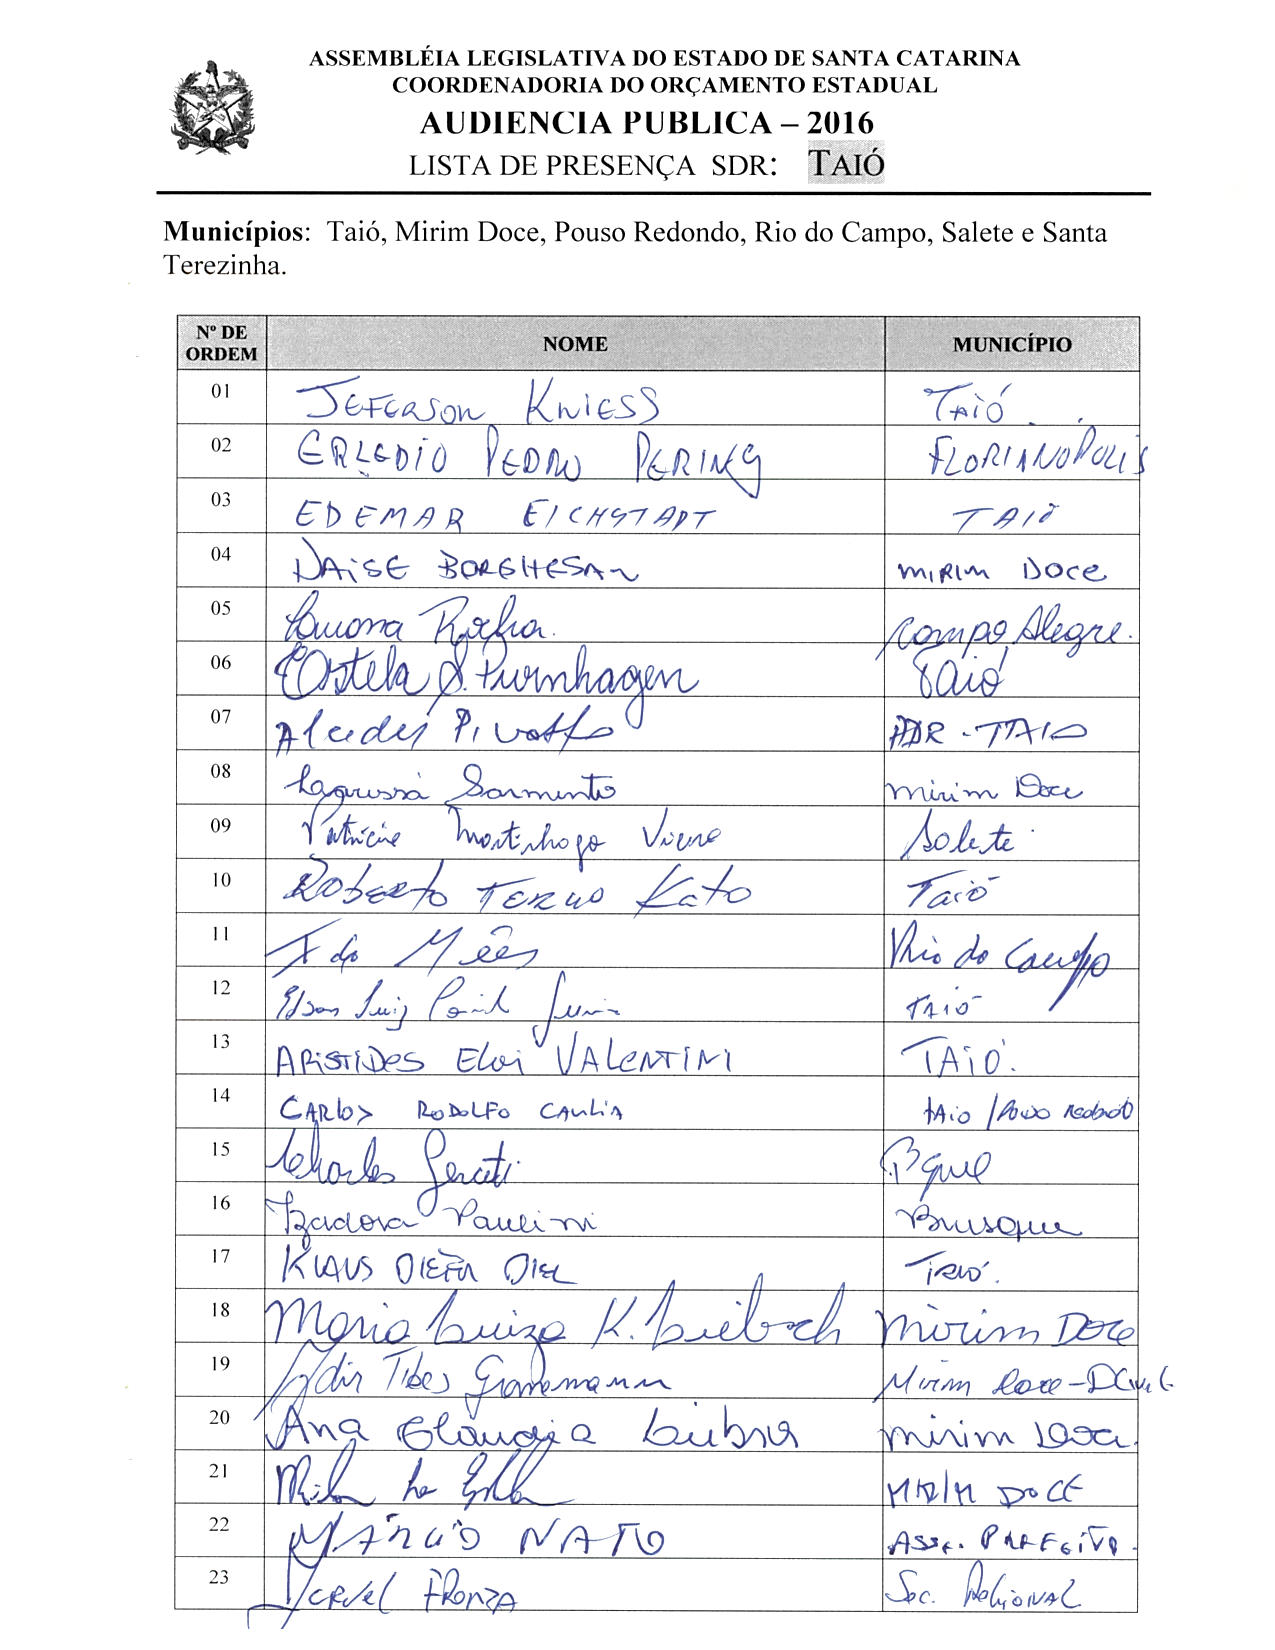 ASSEMBLÉIA LEGISLATIVA DO ESTADO DE SANTA CATARINA
COORDENADORIA DO ORÇAMENTO ESTADUAL
AUDIENCIA PUBLICA – 2016
LISTA DE PRESENÇA SDR: TAIÓ
Municípios: Taió, Mirim Doce, Pouso Redondo, Rio do Campo, Salete e Santa
Terezinha.
Nº DE ORDEM NOME MUNICÍPIO
01 JEFERSON KNIESS TAIÓ
02 ERLEDIO PEDRO PERING FLORIANOPOLIS
03 EDEMAR EICHSTADT TAIÓ
04 DAISE BORGHESAN MIRIM DOCE
05 Rocha Campo Alegre.
06 Estela S. Furnhagen Taió
07 Alcides Pivatto ADR - TAIO
08 Sarmento Mirim Doce
09 Martinhago Vieira Salete
10 ROBERTO TERUO Kato Taió
11 Ido Mêes Rio do Campo
12 Luiz TAIÓ
13 ARISTIDES Eloi VALENTINI TAIÓ.
14 CARLOS RODOLFO CAULIA TAIO / Pouso Redondo
15 Charles
16 Izadora Paulini Brusque
17 KLAUS DIETER DIEL TAIÓ.
18 Maria Luiza K. Liebsch Mirim Doce
19 Tibes Mirim Doce - D Civil
20 Ana Claudia Mirim Doce.
21 MIRIM DOCE
22 MÁRCIO NATO ASSE. PREFEITO.
23 FRONZA Sec. REGIONAL